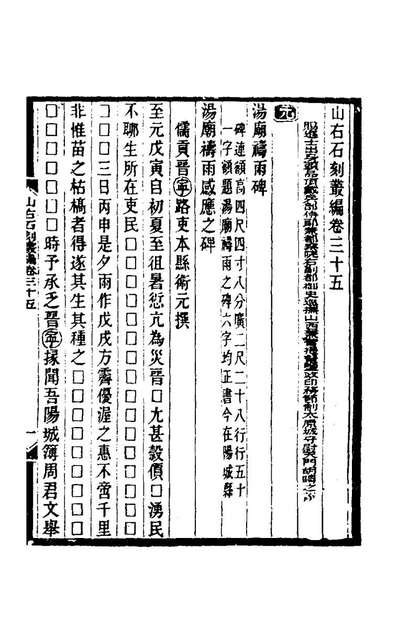 山右石刻叢編卷三十五
賜進士出身
元
湯廟禱雨碑
碑連額高四尺四寸八分廣二尺二十八行行五十
一字額題湯廟禱雨之碑六字均正書今在陽城縣
湯廟禱雨感應之碑
儒貢晉寧路吏本縣衛元撰
至元戊寅自初夏至徂暑愆亢為災晉□尤甚穀價□湧民
不聊生所在吏民□□□□□□□□□□□□□□
□□□三日丙申是夕雨作戊戌方霽優渥之惠不啻千里
非惟苗之枯槁者得遂其生其種之□□□□□□□□□
□□□□□□時予承乏晉寧掾聞吾陽城簿周君文舉
山右石刻叢編卷三十五
一